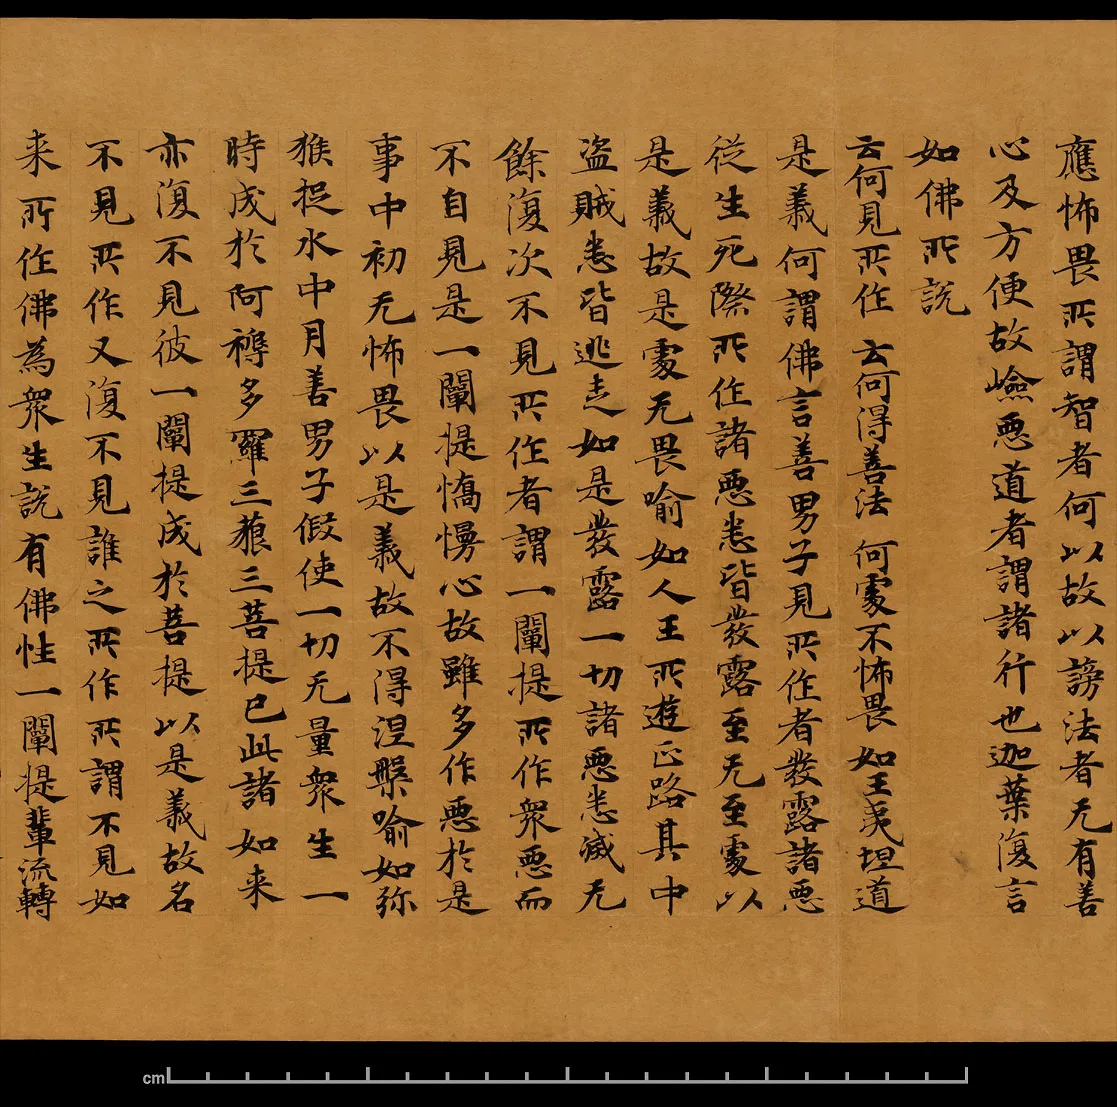 應怖畏所謂智者何以故以謗法者无有善
心及方便故嶮惡道者謂諸行也迦葉復言
如佛所說
云何見所作 云何得善法 何處不怖畏 如王夷坦道
是義何謂佛言善男子見所作者發露諸惡
從生死際所作諸惡悉皆發露至无至處以
是義故是處无畏喻如人王所遊正路其中
盜賊悉皆逃走如是發露一切諸惡悉滅无
餘復次不見所作者謂一闡提所作衆惡而
不自見是一闡提憍慢心故雖多作惡於是
事中初无怖畏以是義故不得涅槃喻如弥
猴捉水中月善男子假使一切无量衆生一
時成於阿耨多羅三藐三菩提已此諸如来
亦復不見彼一闡提成於菩提以是義故名
不見所作又復不見誰之所作所謂不見如
来所作佛為衆生說有佛性一闡提輩流轉
cm